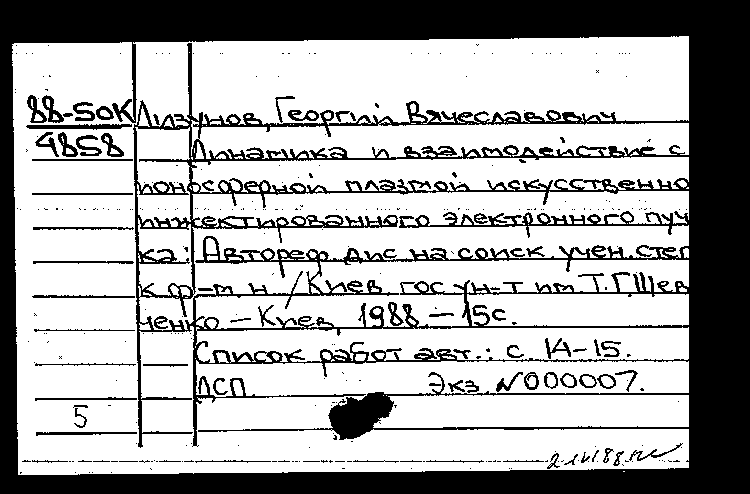 88-50К Лизунов, Георгий Вячеславович
4858 Динамика и взаимодействие с
ионосферной плазмой искусственно
инжектированного электронного пуч
ка: Автореф. дис на соиск. учен. степ
к. ф-м. н. /Киев. гос ун-т им Т.Г.Шев
ченко - Киев, 1988. - 15с.
Список работ авт.: с. 14-15.
ДСП. Экз. №000007.
5